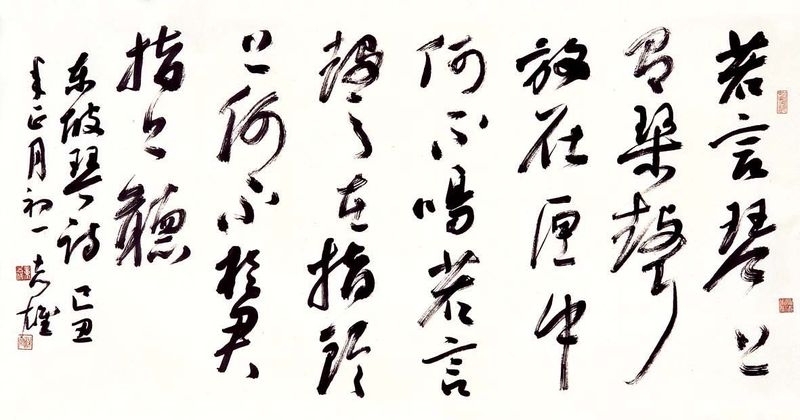 若言琴上
有琴聲
放在匣中
何不鳴若言
聲在指頭
上何不於君
指上聽
东坡琴詩 己丑
年正月初一 志雄